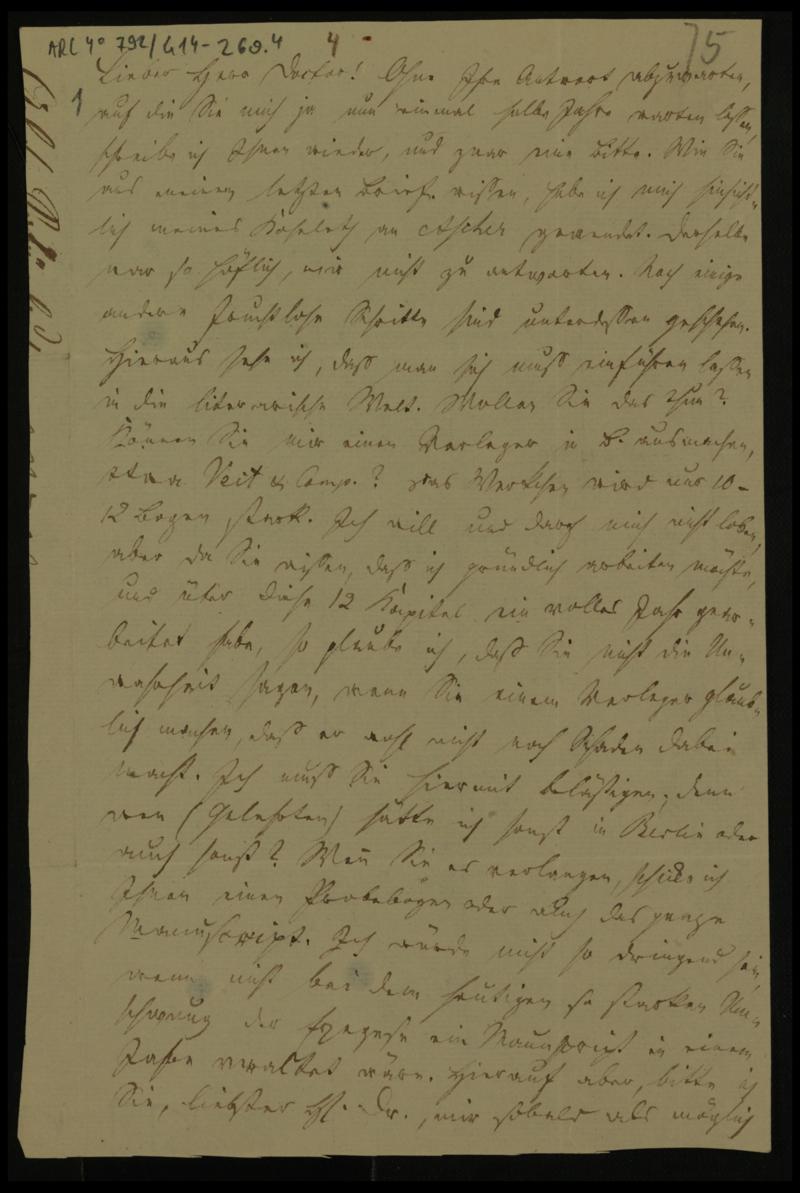 ARC 4° 792/G14-269.4 4 75
1
Lieber Herr Doctor! Ohne Ihre Antwort abzuwarten,
auf die Sie mich ja nun einmal halbe Jahre warten lassen,
schreibe ich Ihnen wieder, und zwar eine Bitte. Wie Sie
aus meinem letzten Briefe wissen, habe ich mich hinsicht-
lich meines Koheleth an Ascher gewendet. Derselbe
war so höflich, mir nicht zu antworten. Noch einige
andere fruchtlose Schritte sind unterdessen geschehen.
Hieraus sehe ich, dass man sich muss einführen lassen
in die literarische Welt. Wollen Sie das thun?
Können Sie mir einen Verleger in B. ausmachen,
etwa Veit & Comp.? Das Werkchen wird nur 10-
12 Bogen stark. Ich will und darf mich nicht loben,
aber da Sie wissen, dass ich gründlich arbeiten möchte,
und über diese 12 Kapitel ein volles Jahr gear-
beitet habe, so glaube ich, dass Sie nicht die Un-
wahrheit sagen, wenn Sie einem Verleger glaub-
lich machen, dass er wohl nicht noch Schaden dabei
macht. Ich muss Sie hiermit belästigen; denn
wen (Gelehrten) hätte ich sonst in Berlin oder
auch sonst? Wenn Sie es verlangen, schicke ich
Ihnen einen Probebogen oder auch das ganze
Manuscript. Ich würde nicht so dringend sein,
wenn nicht bei dem heutigen so starken Um-
schwung der Exegese ein Manuscript in einem
Jahre veraltet wäre. Hierauf aber, bitte ich
Sie, liebster H. Dr., mir sobald als möglich